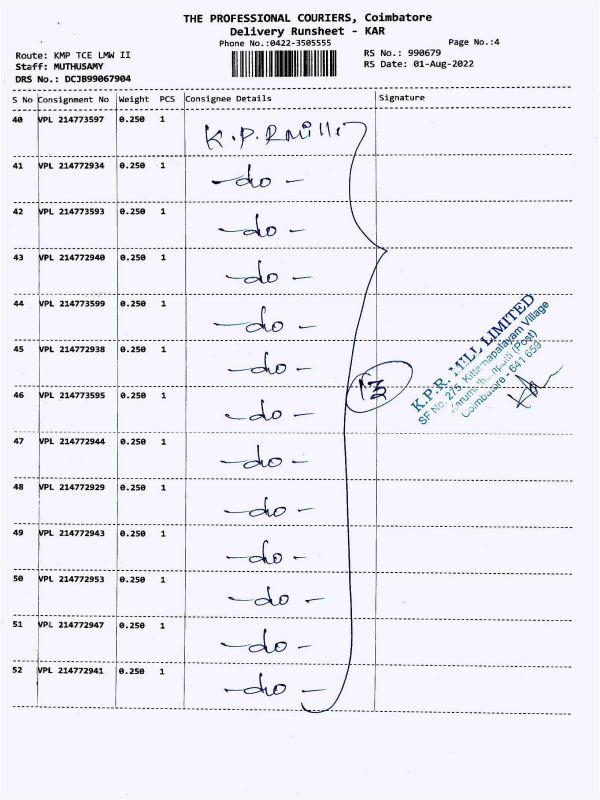 THE PROFESSIONAL COURIERS, Coimbatore
Delivery Runsheet - KAR
Phone No.:0422-3505555
Page No.:4
Route: KMP TCE LMW II
RS No.: 990679
Staff: MUTHUSAMY
RS Date: 01-Aug-2022
DRS No.: DCJB99067904
S No Consignment No Weight PCS Consignee Details Signature
40 VPL 214773597 0.250 1 K.P.R Mills
41 VPL 214772934 0.250 1 -do-
42 VPL 214773593 0.250 1 -do-
43 VPL 214772940 0.250 1 -do-
44 VPL 214773599 0.250 1 -do-
45 VPL 214772938 0.250 1 -do-
46 VPL 214773595 0.250 1 -do-
47 VPL 214772944 0.250 1 -do-
48 VPL 214772929 0.250 1 -do-
49 VPL 214772943 0.250 1 -do-
50 VPL 214772953 0.250 1 -do-
51 VPL 214772947 0.250 1 -do-
52 VPL 214772941 0.250 1 -do-
13
K.P.R. MILL LIMITED
SF No. 275, Kittampalayam Village
(Post)
Coimbatore - 641 659